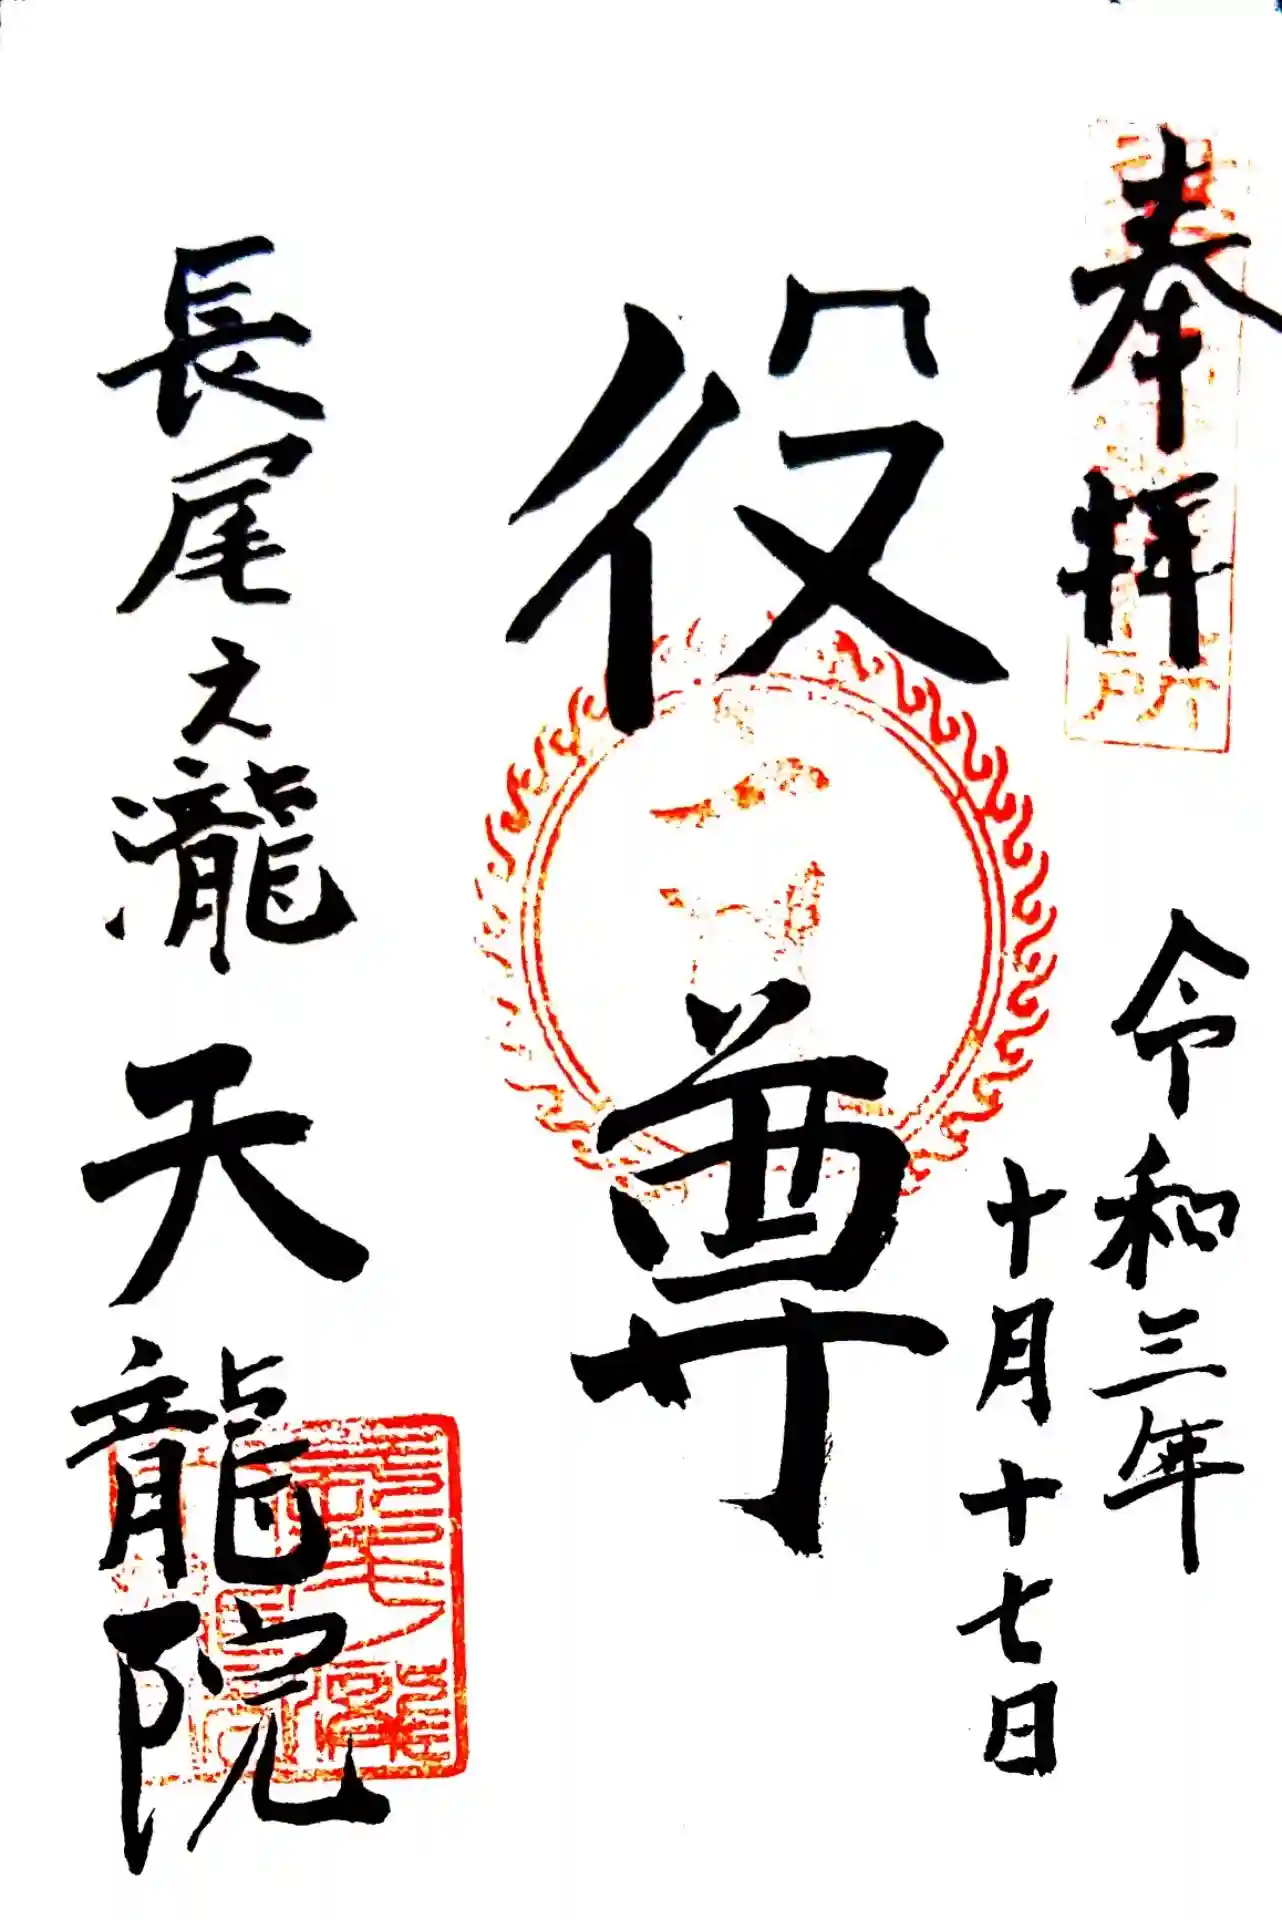 奉拝
令和三年
十月十七日
役尊
長尾之瀧 天龍院